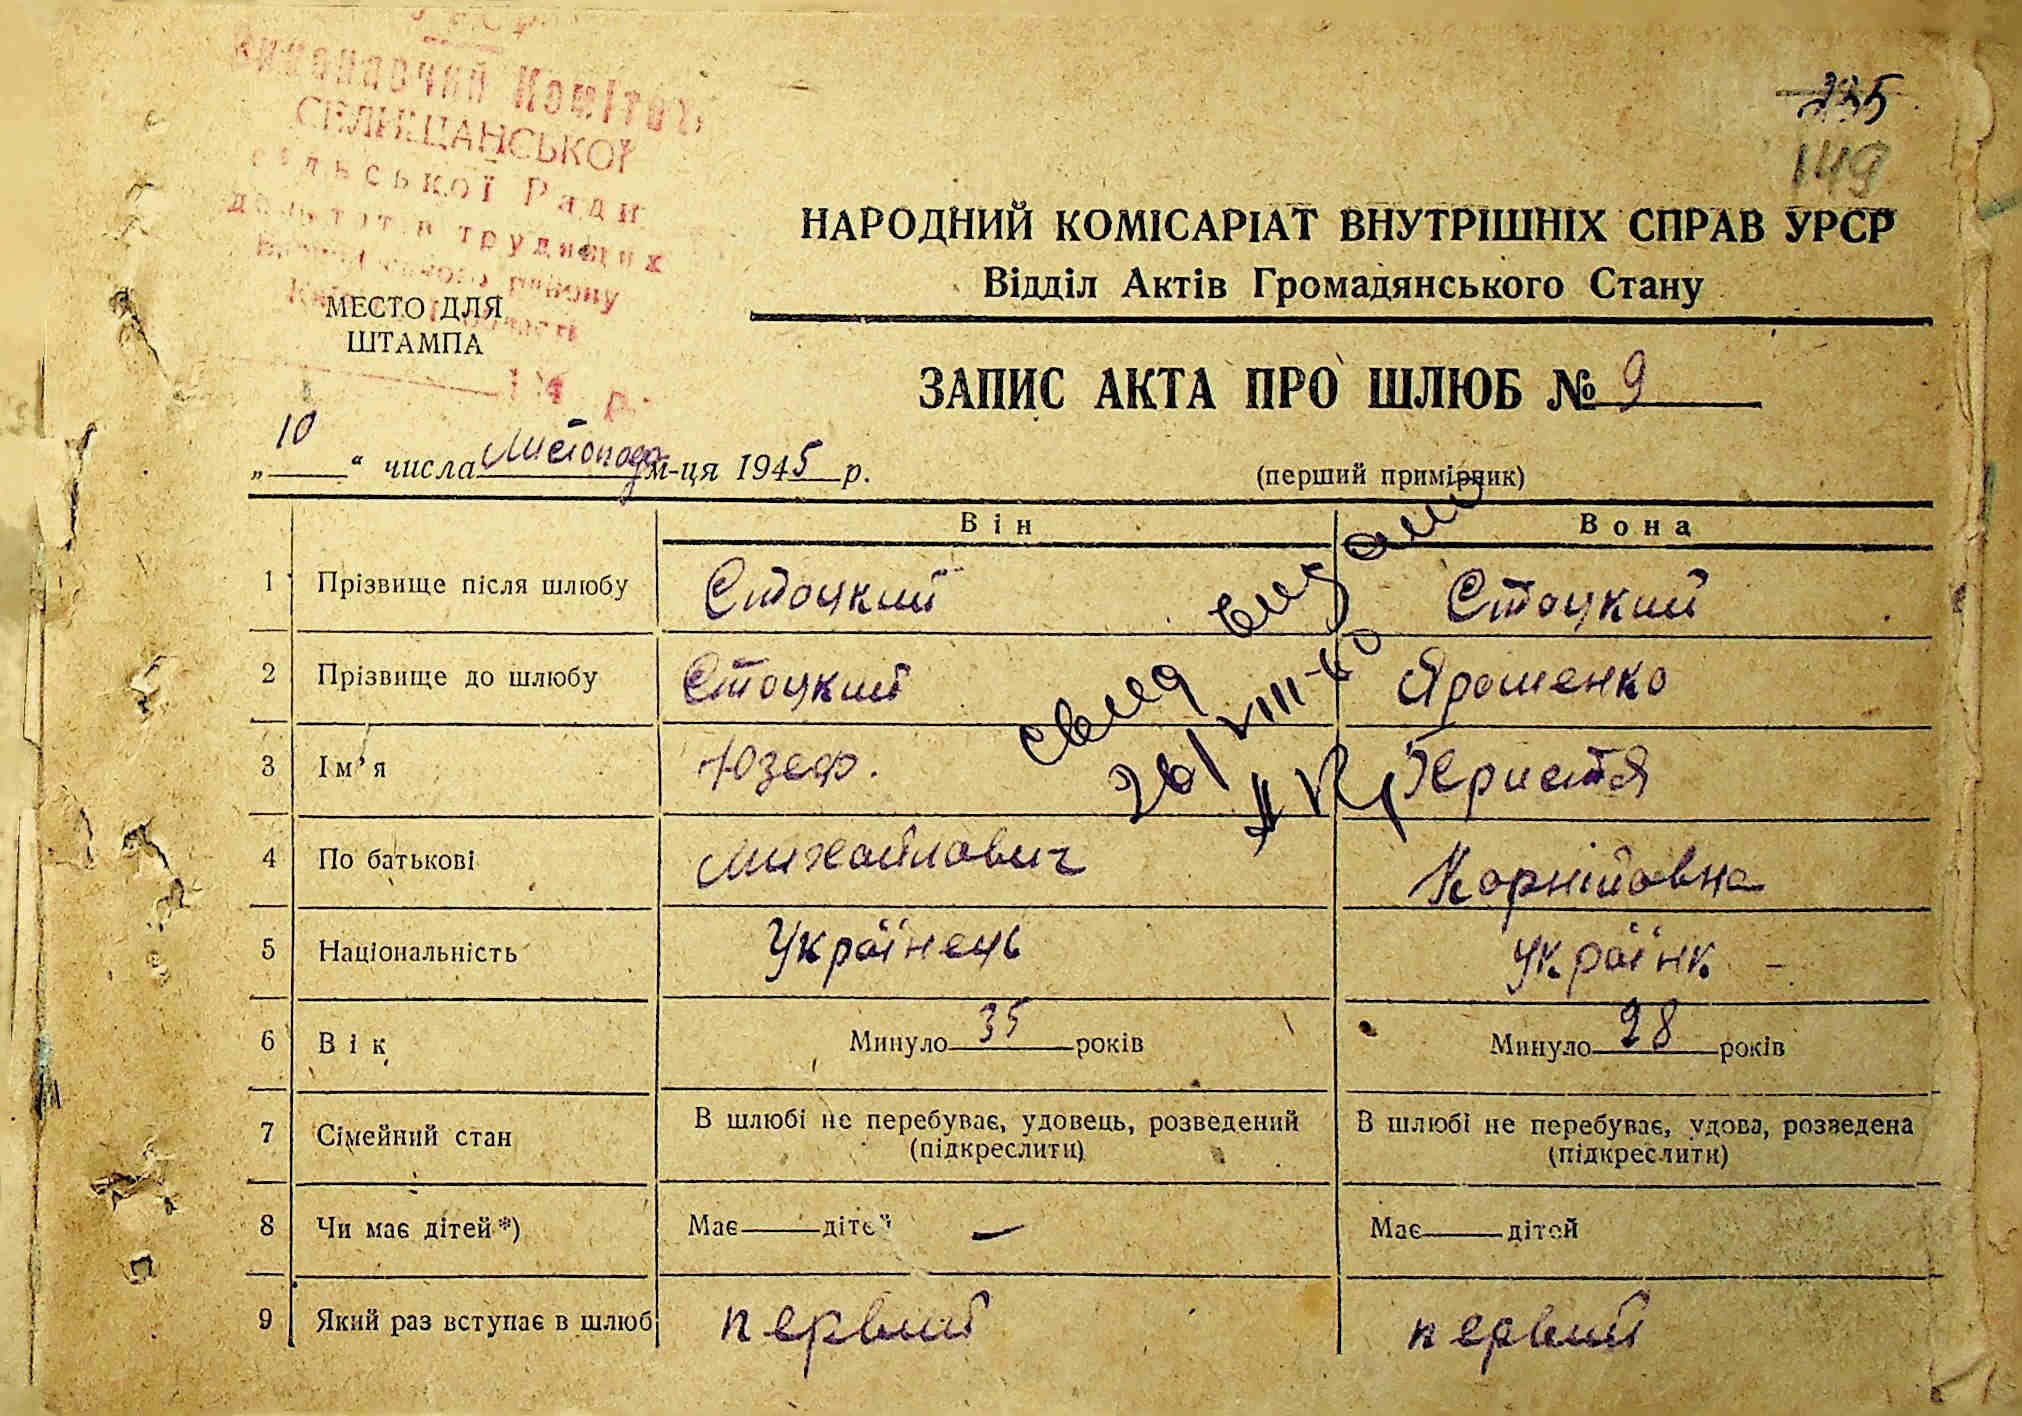 Виконавчий Комітет
СЕЛИЩАНСЬКОЇ
сільської Ради
депутатів трудящих
району
області
МЕСТО ДЛЯ
ШТАМПА
194 р.
235
149
НАРОДНИЙ КОМІСАРІАТ ВНУТРІШНІХ СПРАВ УРСР
Відділ Актів Громадянського Стану
ЗАПИС АКТА ПРО ШЛЮБ № 9
„10“ числа Листопада м-ця 1945 р.
(перший примірник)
Він Вона
1 Прізвище після шлюбу Стоцкий Стоцкий
2 Прізвище до шлюбу Стоцкий Ярошенко
3 Ім’я Юзеф. Христя
4 По батькові Михайлович Корнійовна
5 Національність Українець Українк
6 Вік Минуло 35 років Минуло 28 років
7 Сімейний стан В шлюбі не перебуває, удовець, розведений В шлюбі не перебуває, удова, розведена
(підкреслити) (підкреслити)
8 Чи має дітей*) Має — дітей — Має — дітей
9 Який раз вступає в шлюб первий первий
свид видано
26/VIII-60